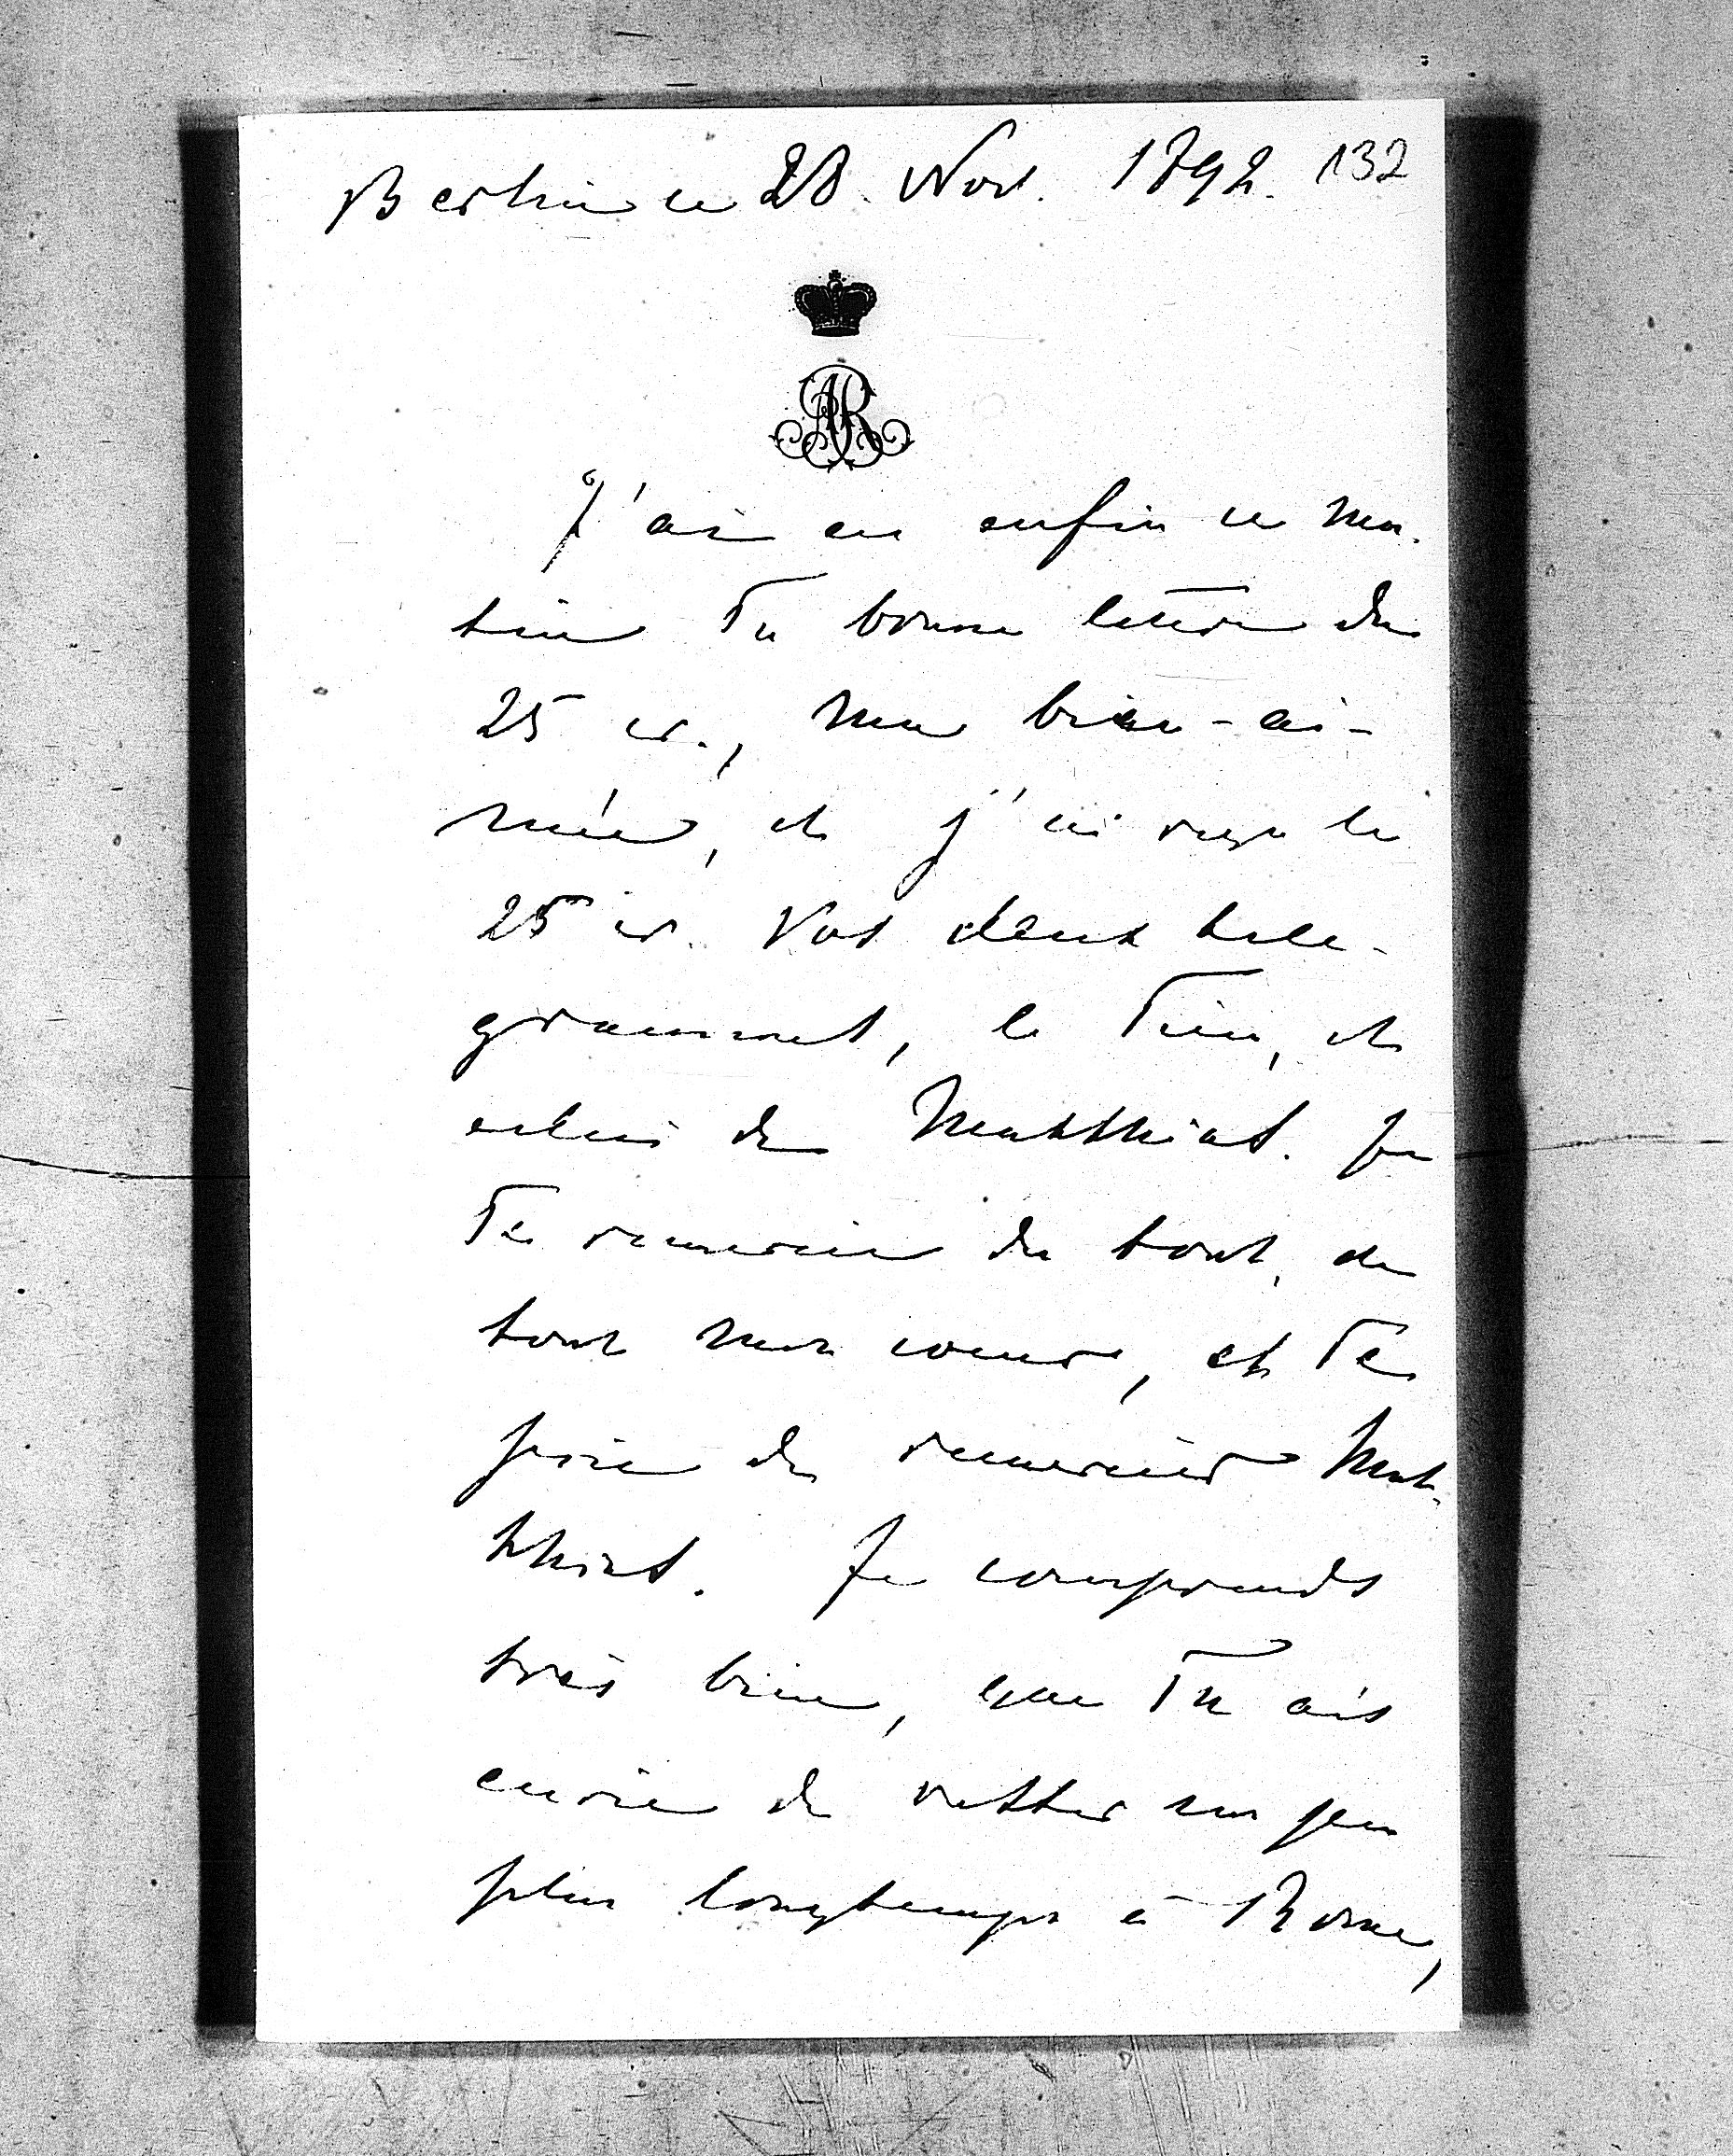 Berlin ce 28. Nov. 1892. 132
AR
J'ai eu enfin ce ma-
tin Ta bonne lettre du
25 cr., ma bien-ai-
mée, et j'ai reçu le
25 cr. Vos deux tele-
grammes, le Tien, et
celui de Matthias. Je
Te remercie du tout, de
tout mon coeur, et Te
prie de remercier Mat-
thias. Je comprends
très bien, que Tu ais
envie de rester un peu
plus longtemps à Rome,